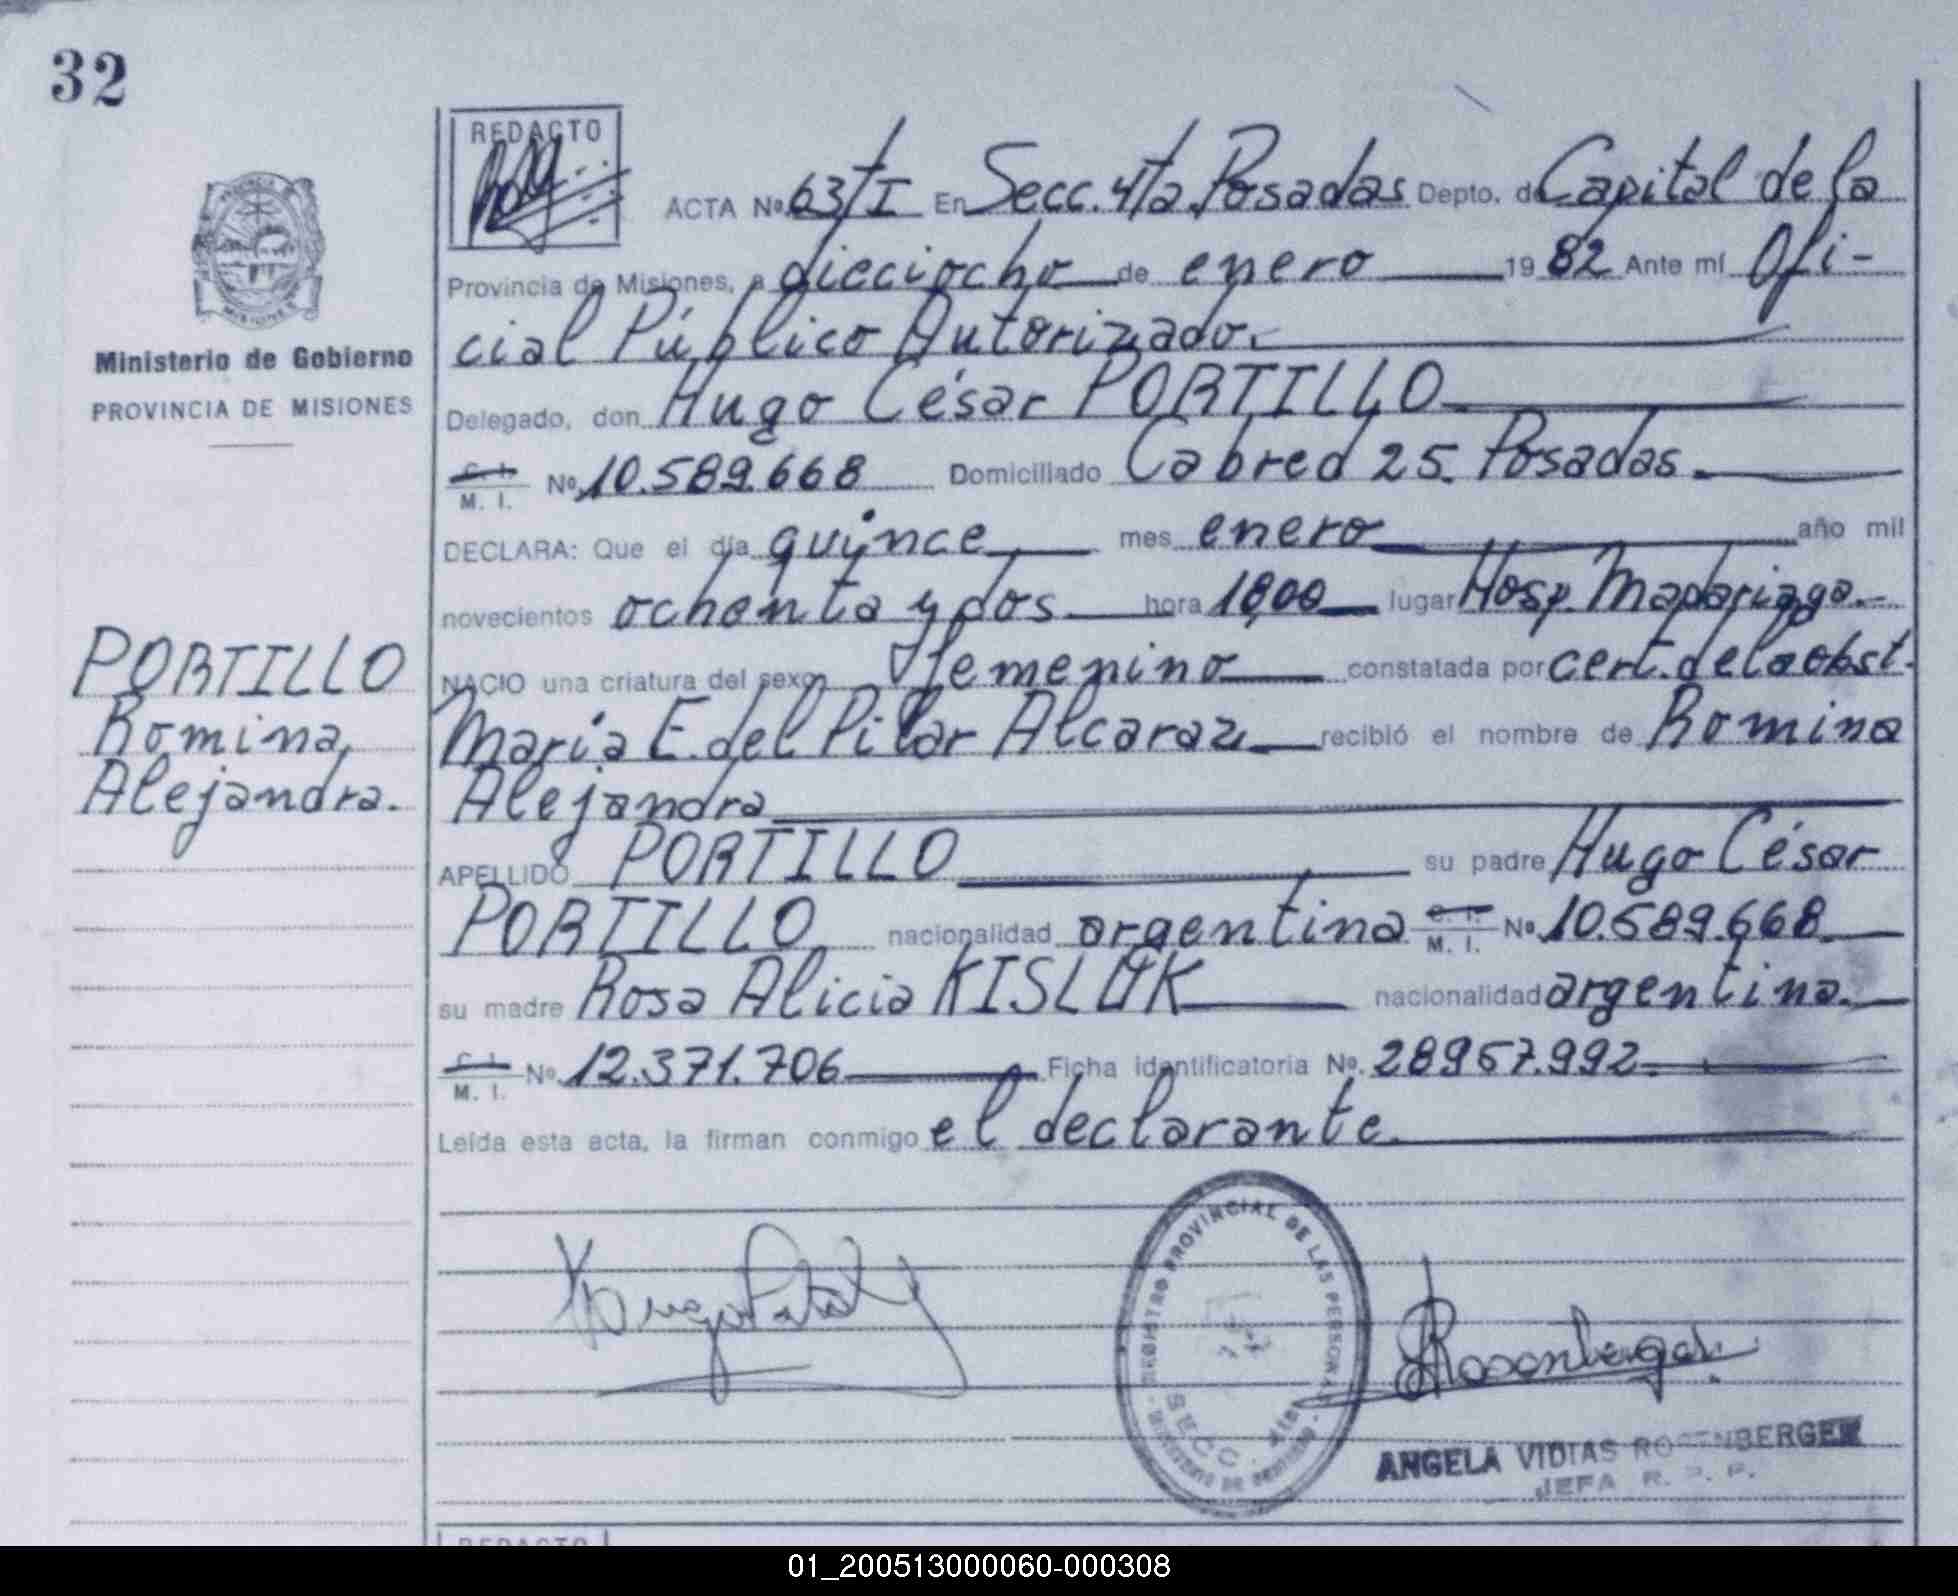 32
REDACTO
ACTA Nº 63/I En Secc. 4/ta. Posadas Depto. de Capital de la
Provincia de Misiones, a dieciocho de enero 19 82 Ante mí Ofi-
cial Público Autorizado.
Ministerio de Gobierno
PROVINCIA DE MISIONES
Delegado, don Hugo César PORTILLO
C. I. M. I. Nº 10.589.668 Domiciliado Cabred 25. Posadas.
DECLARA: Que el día quince mes enero año mil
novecientos ochenta y dos hora 18,00 lugar Hosp. Madariaga.-
NACIO una criatura del sexo femenino constatada por cert. de la obst.
PORTILLO
Romina
Alejandra.
María E. del Pilar Alcaraz recibió el nombre de Romina
Alejandra
APELLIDO PORTILLO su padre Hugo César
PORTILLO nacionalidad argentina C. I. M. I. Nº 10.589.668
su madre Rosa Alicia KISLUK nacionalidad argentina.
C. I. M. I. Nº 12.371.706 Ficha identificatoria Nº 28957.992
Leída esta acta, la firman conmigo el declarante
REGISTRO PROVINCIAL DE LAS PERSONAS
SECC. 4ta
MINISTERIO DE GOBIERNO
ANGELA VIDIAS ROSENBERGER
JEFA R. P. P.
REDACTO
01_200513000060-000308